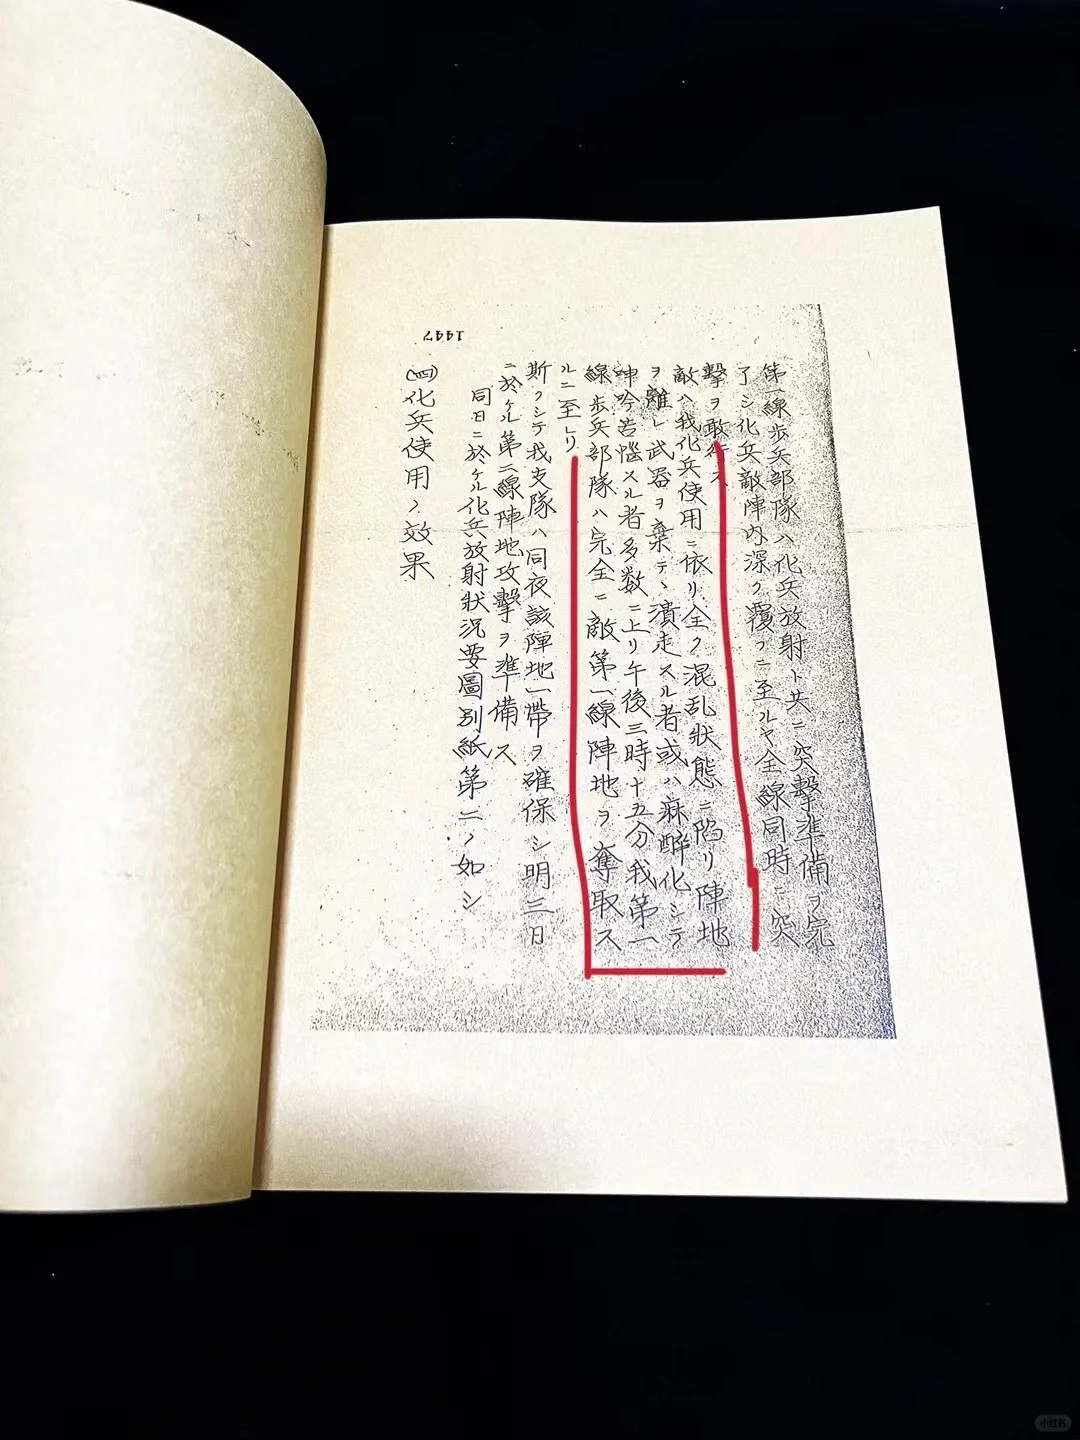 第一線歩兵部隊ハ化兵放射ト共ニ突擊準備ヲ完
了シ化兵敵陣内深ク覆フニ至ルヤ全線同時ニ突
擊ヲ敢行ス
敵ハ我化兵使用ニ依リ全ク混乱狀態ニ陷リ陣地
ヲ離レ武器ヲ棄テヽ潰走スル者或ハ麻醉化シテ
呻吟苦惱スル者多数ニ上リ午後三時十五分我第一
線歩兵部隊ハ完全ニ敵第一線陣地ヲ奪取ス
ルニ至レリ
斯クシテ我支隊ハ同夜該陣地一帶ヲ確保シ明三日
ニ於ケル第二線陣地攻擊ヲ準備ス
同日ニ於ケル化兵放射狀況要圖別紙第二ノ如シ
(四)化兵使用ノ效果
1447
小红书